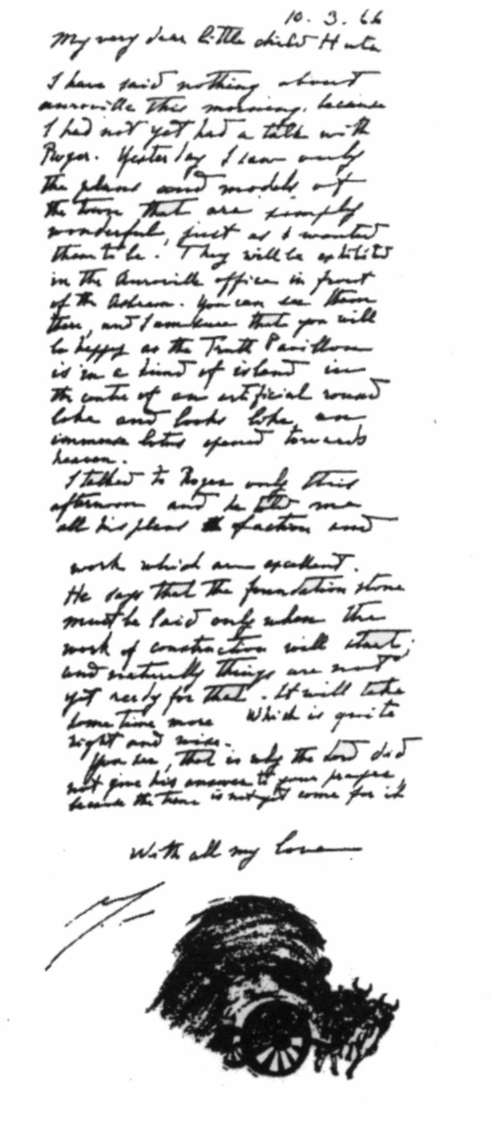 10. 3. 66
My very dear little child Huta
I have said nothing about
Auroville this morning, because
I had not yet had a talk with
Roger. Yesterday I saw only
the plans and models of
the town that are simply
wonderful, just as I wanted
them to be. They will be exhibited
in the Auroville office in front
of the Ashram. You can see them
there, and I am sure that you will
be happy as the Truth Pavillion
is in a kind of island in
the centre of an artificial round
lake and looks like an
immense lotus opened towards
heaven.
I talked to Roger only this
afternoon and he told me
all his plans of action and
work which are excellent.
He says that the foundation stone
must be laid only when the
work of construction will start;
and naturally things are not
yet ready for that. It will take
some time more which is quite
right and wise.
You see, that is why the Lord did
not give his answer to your prayer
because the time is not yet come for it
With all my love